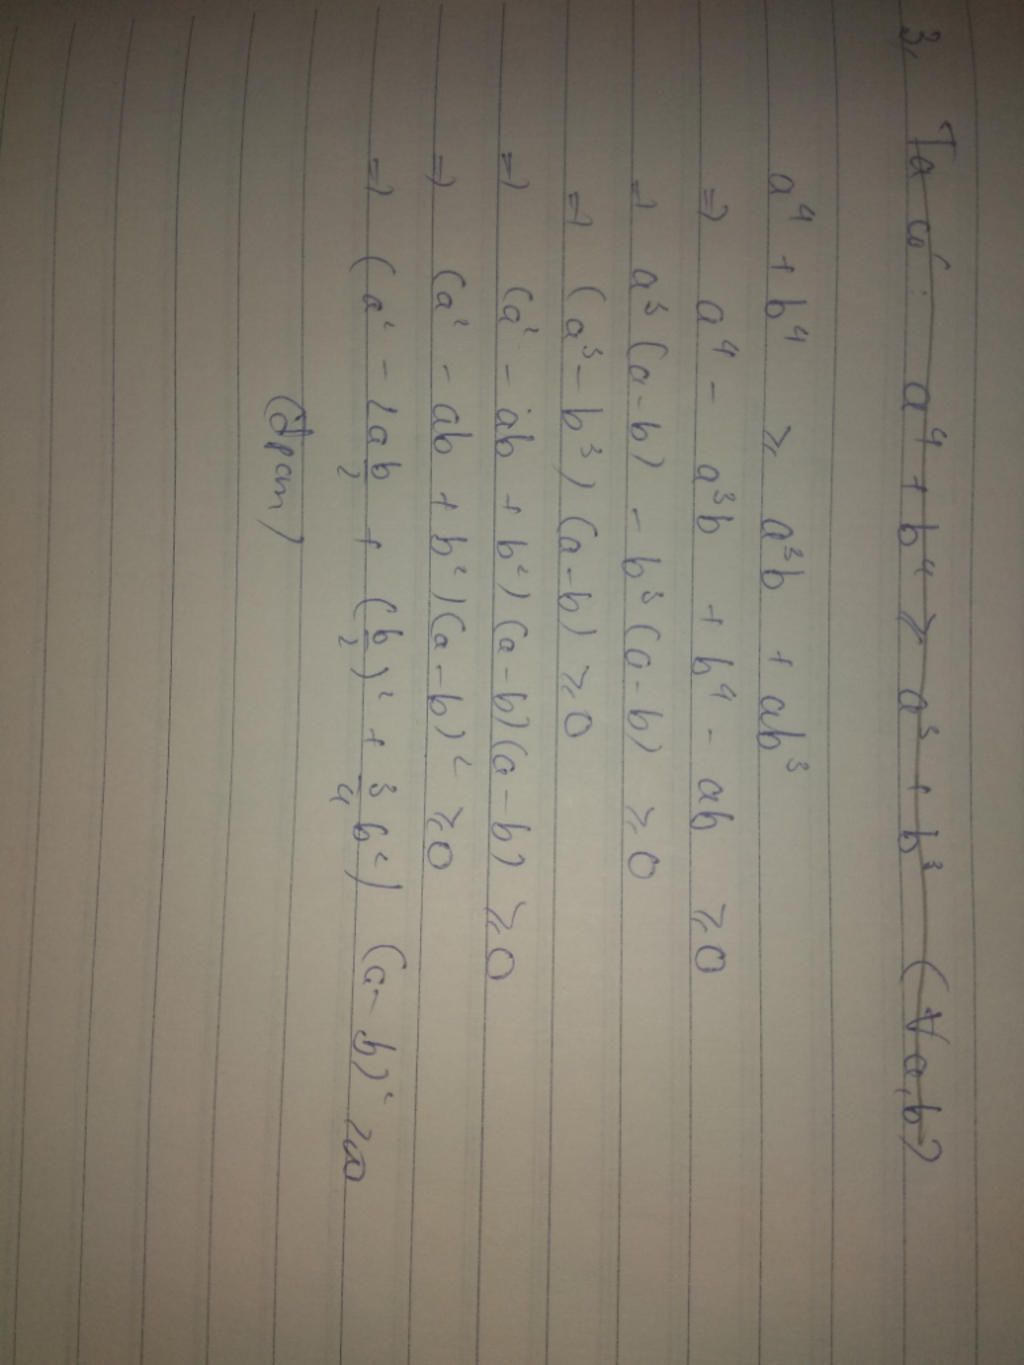 3, Ta có: a⁴ + b⁴ ≥ a³ + b³ (∀ a, b)
a⁴ + b⁴ ≥ a³b + ab³
=> a⁴ - a³b + b⁴ - ab ≥ 0
=> a³(a-b) - b³(a-b) ≥ 0
=> (a³ - b³)(a-b) ≥ 0
=> (a² - ab + b²)(a-b)(a-b) ≥ 0
=> (a² - ab + b²)(a-b)² ≥ 0
=> (a² - 2a b/2 + (b/2)² + 3/4 b²) (a-b)² ≥ 0
(đpcm)